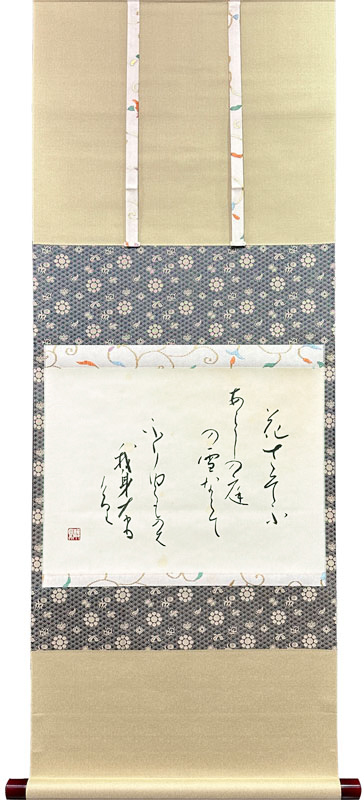 花さそふ
あらしの庭
の雪ならて
ふりゆくものは
我身なり
けり